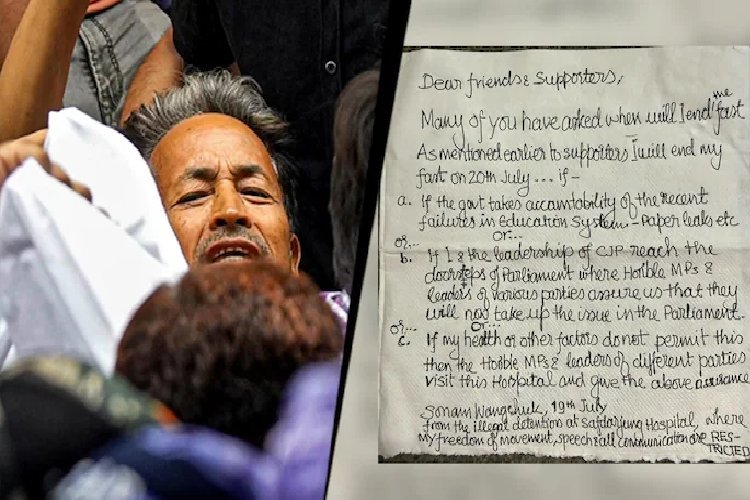 Dear friends & Supporters,
Many of you have asked me when will I end fast
As mentioned earlier to supporters I will end my
fast on 20th July ... if -
a. If the govt takes accountability of the recent
failures in Education System - Paper leaks etc
or...
or...
b. If I & the leadership of CJP reach the
doorsteps of Parliament where Hon'ble MPs &
leaders of various parties assure us that they
will now take up the issue in the Parliament.
or...
or...
c. If my health or other factors do not permit this
then the Hon'ble MPs & leaders of different parties
visit this Hospital and give the above assurance
Sonam Wangchuk, 19th July
from the illegal detention at Safdarjung Hospital, where
my freedom of movement, speech & all communication are RES-
TRICTED